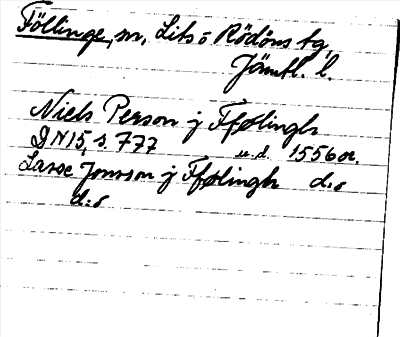 Föllinge, sn, Lits o Rödöns tg,
Jämtl. l.
Niels Person j Ffølingh
DN 15, s. 777 u.d. 1556 or.
Lasse Jonsson j Ffølingh d:o
d:o